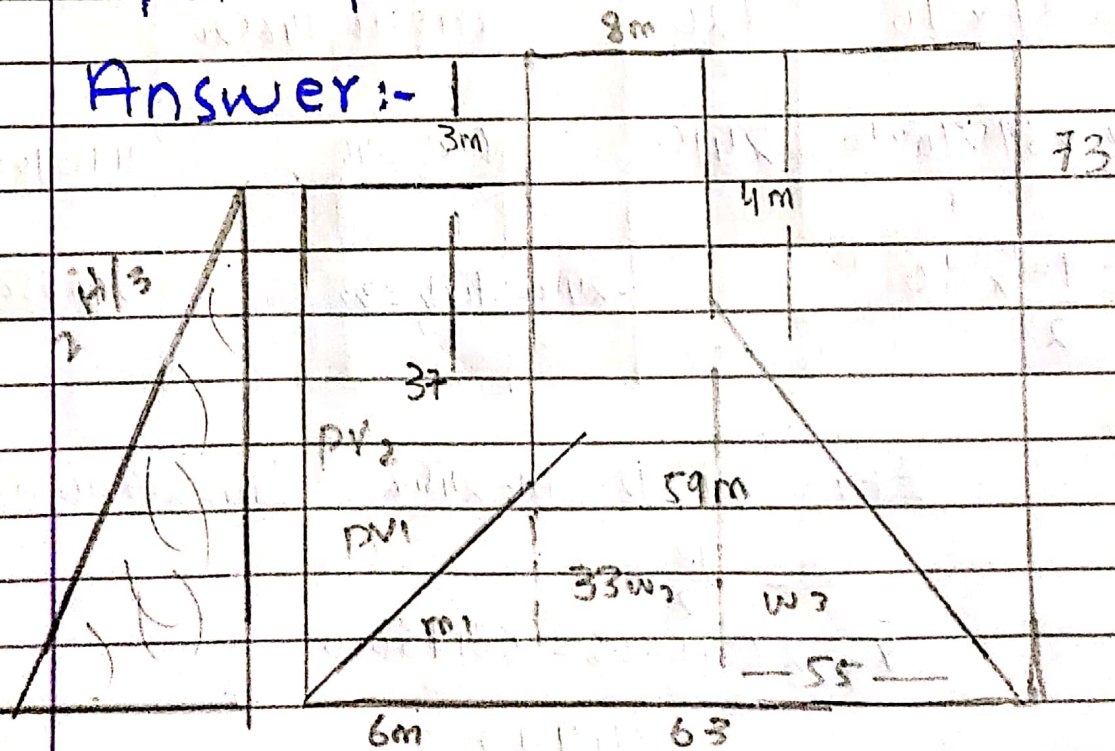 8m
Answer:-
3m
73
4m
H/3
37
PV2
59m
PV1
33w2
w3
55
6m
63